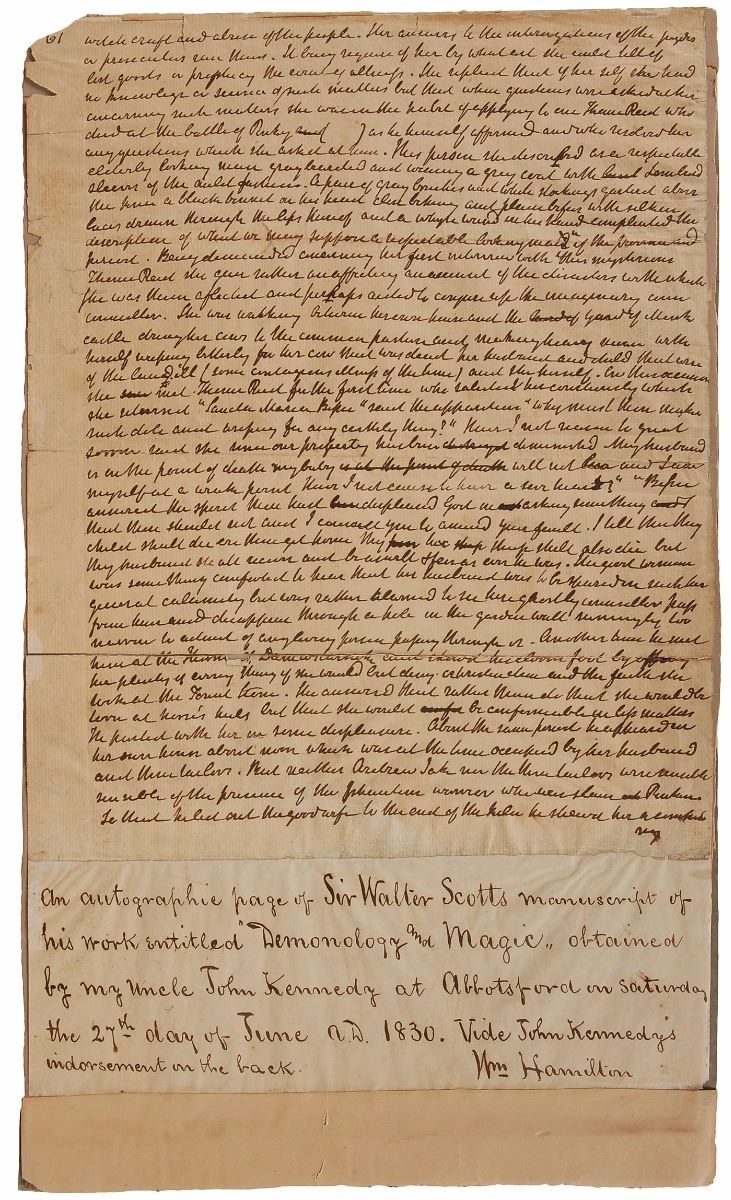 61
witch craft and abuse of the people. Her answers to the interrogations of the judges
or prosecutors ran thus. It being required of her by what art she could tell of
lost goods or prophecy the event of illness. She replied that of her self she had
no knowledge or science of such matters but that when questions were asked at her
concerning such matters she was in the habit of applying to one Thome Reid who
died at the battle of Pinky ) as he himself affirmed and who resolved her
any questions which she asked at him. This person she described as a respectable
elderly looking man gray bearded and wearing a grey coat with Lombard
sleeves of the auld fashion. A pair of gray breeches and white stockings gartered above
the knee a black bonnet on his head close behind and plain before with silken
laces drawn through the lips thereof and a white wand in his hand completed the
description of what we may suppose a respectable looking man of the province and
period. Being demanded concerning her first interview with this mysterious
Thome Reid she gave rather an affecting account of the disasters with which
she was then afflicted and perhaps aided to conjure up the imaginary
counsellor. She was walking between her own house and the yard of Monk
castle driving her cows to the common pasture and making heavy moan with
herself weeping bitterly for her cow that was dead her husband and child that were
of the land-ill (some contagious illness of the time) and she herself. On this occasion
she met Thome Reid for the first time who saluted her courteously which
she returned "Sancta Maria Bessie" said the apparition "why must thou make
such dole and weeping for any earthly thing?" "Have I not reason for great
sorrow said she since our property diminished My husband
is on the point of death my baby is at the point of death will not live and I am
myself at a weak point Have I not cause to have a sore heart?" "Bessie
answered the spirit thou hast displeased God asking something
that thou should not and I counsel you to amend your fault. I tell thee thy
child shall die ere thou get home thy two sheep shall also die but
thy husband shall recover and be as well & feir as ever he was. The good woman
was something comforted to hear that her husband was to be spared in such her
general calamity but was rather alarmed to see her ghostly counsellor pass
from her and disappear through a hole in the garden wall seemingly too
narrow to admit of any living person passing through it. Another time he met
him at the Thorn of Dawmstarnick and showed his
her plenty of every thing if she would but deny christendom and the faith she
took at the Font stone. She answered that rather than do that she would be
torn at horse's heels but that she would be conformable in less matters
He parted with her in some displeasure. About the same period he appeared in
her own house about noon which was at the time occupied by her husband
and three tailors. But neither Andrew Jack nor the three tailors were
sensible of the presence of the phantom warrior who was slain at Pinkie
So that he led out the goodwife to the end of the house he shewed her a compa
ny
An autographic page of Sir Walter Scotts manuscript of
his work entitled "Demonology and Magic" obtained
by my Uncle John Kennedy at Abbotsford on saturday
the 27th day of June A.D. 1830. Vide John Kennedy's
indorsement on the back.
Wm Hamilton